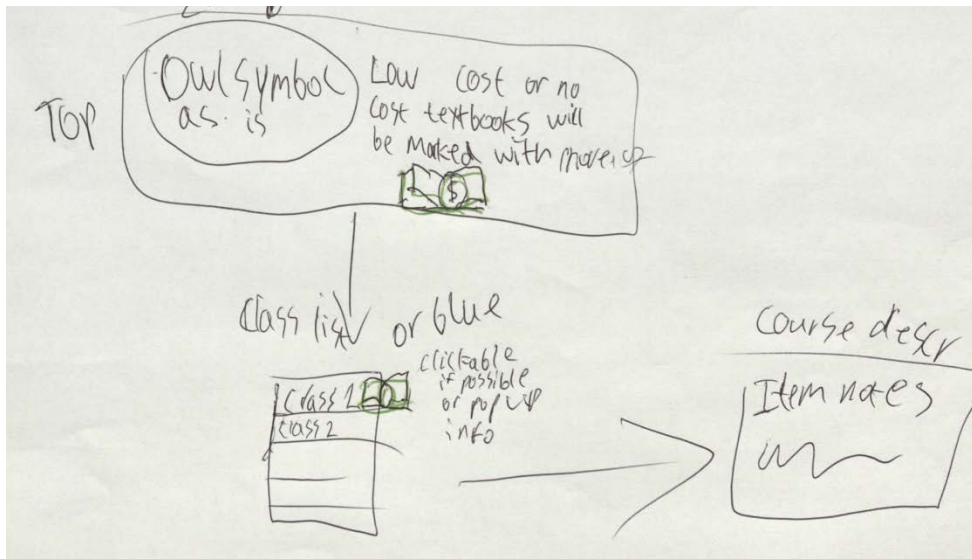 TOP
Owl symbol
as is
Low cost or no
cost textbooks will
be marked with
$
Class list or blue
Class 1
Class 2
clickable
if possible
or pop up
info
course descr
Item notes